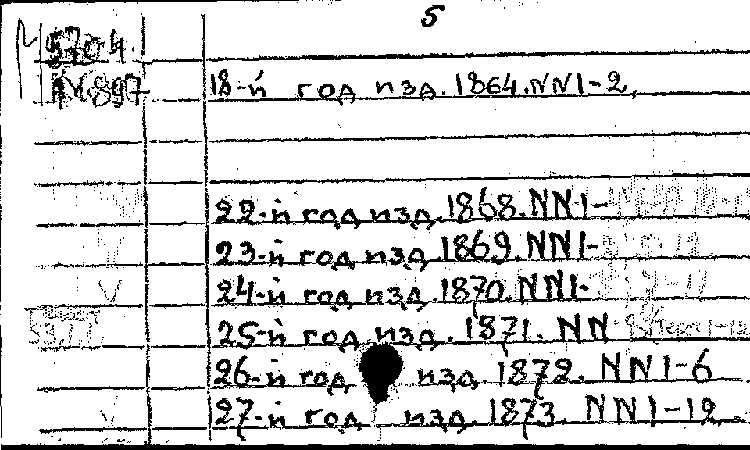 5
18-й год изд. 1864. NN 1-2,
22-й год изд. 1868. NN 1-
23-й год изд. 1869. NN 1-
24-й год изд. 1870. NN 1-
25-й год изд. 1871. NN
26-й год изд. 1872. NN 1-6
27-й год изд. 1873. NN 1-12.